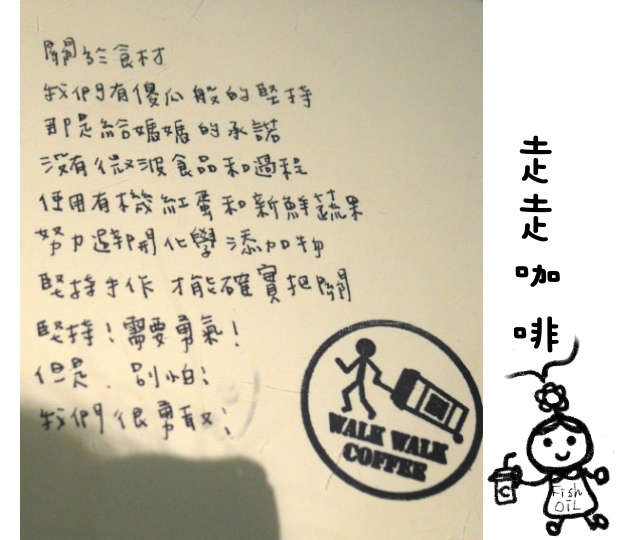 關於食材
我們有傻瓜般的堅持
那是給媽媽的承諾
沒有微波食品和過程
使用有機紅蛋和新鮮蔬果
努力避開化學添加物
堅持手作 才能確實把關
堅持！需要勇氣！
但是、別怕！
我們很勇敢！
WALK WALK
COFFEE
走走咖啡
C
Fish
OIL